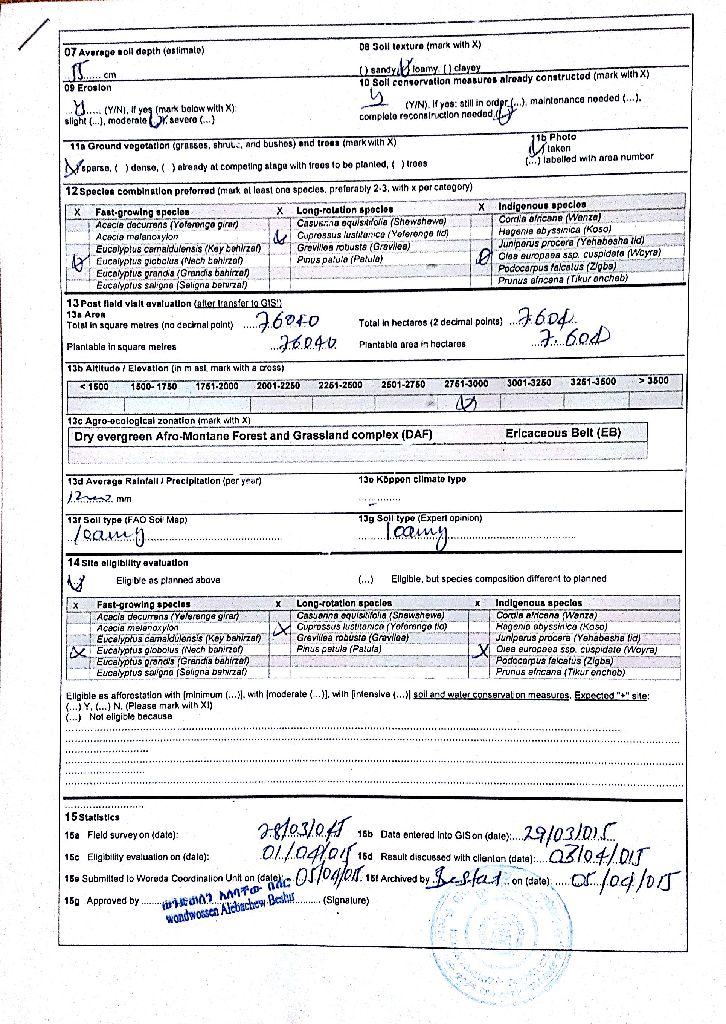 07 Average soil depth (estimate)
08 Soil texture (mark with X)
15 ...... cm
( ) sandy ( ) loamy, ( ) clayey
09 Erosion
10 Soil conservation measures already constructed (mark with X)
y ...... (Y/N), if yes (mark below with X):
y (Y/N), If yes: still in order (...), maintenance needed (...),
slight (...), moderate (...), severe (...)
complete reconstruction needed (...)
11a Ground vegetation (grasses, shrubs, and bushes) and trees (mark with X)
11b Photo
taken
sparse, ( ) dense, ( ) already at competing stage with trees to be planted, ( ) trees
(...) labelled with area number
12 Species combination preferred (mark at least one species, preferably 2-3, with x per category)
X Fast-growing species X Long-rotation species X Indigenous species
Acacia decurrens (Yeferenge girar) Casuarina equisitifolia (Shewshewe) Cordia africana (Wanza)
Acacia melanoxylon Cupressus lusitanica (Yeferenge tid) Hagenia abyssinica (Koso)
Eucalyptus camaldulensis (Key bahirzaf) Grevillea robusta (Gravilea) Juniperus procera (Yehabesha tid)
Eucalyptus globolus (Nech bahirzaf) Pinus patula (Patula) Olea europaea ssp. cuspidata (Woyra)
Eucalyptus grandis (Grandis bahirzaf) Podocarpus falcatus (Zigba)
Eucalyptus saligna (Saligna bahirzaf) Prunus africana (Tikur encheb)
13 Post field visit evaluation (after transfer to GIS!)
13a Area
Total in square metres (no decimal point) 76040 Total in hectares (2 decimal points) 7.604
Plantable in square metres 76040 Plantable area in hectares 7.604
13b Altitude / Elevation (in m asl, mark with a cross)
< 1500 1500- 1750 1751-2000 2001-2250 2251-2500 2501-2750 2751-3000 3001-3250 3251-3500 > 3500
13c Agro-ecological zonation (mark with X)
Dry evergreen Afro-Montane Forest and Grassland complex (DAF) Ericaceous Belt (EB)
13d Average Rainfall / Precipitation (per year)
13e Köppen climate type
mm
13f Soil type (FAO Soil Map)
13g Soil type (Expert opinion)
loamy
loamy
14 Site eligibility evaluation
Eligible as planned above (...) Eligible, but species composition different to planned
x Fast-growing species x Long-rotation species x Indigenous species
Acacia decurrens (Yeferenge girar) Casuarina equisitifolia (Shewshewe) Cordia africana (Wanza)
Acacia melanoxylon Cupressus lusitanica (Yeferenge tid) Hagenia abyssinica (Koso)
Eucalyptus camaldulensis (Key bahirzaf) Grevillea robusta (Gravilea) Juniperus procera (Yehabesha tid)
X Eucalyptus globolus (Nech bahirzaf) Pinus patula (Patula) X Olea europaea ssp. cuspidata (Woyra)
Eucalyptus grandis (Grandis bahirzaf) Podocarpus falcatus (Zigba)
Eucalyptus saligna (Saligna bahirzaf) Prunus africana (Tikur encheb)
Eligible as afforestation with [minimum (...)], with [moderate (...)], with [intensive (...)] soil and water conservation measures. Expected "+" site:
(...) Y, (...) N. (Please mark with X!)
(...) Not eligible because
15 Statistics
15a Field survey on (date): 28/03/015 15b Data entered into GIS on (date): 29/03/015
15c Eligibility evaluation on (date): 01/04/015 15d Result discussed with client on (date): 03/04/015
15e Submitted to Woreda Coordination Unit on (date): 05/04/015 15f Archived by on (date) 05/04/015
15g Approved by ወንድወሰን አለባቸው በሽር (Signature)
wondwossen Alebachew Beshir